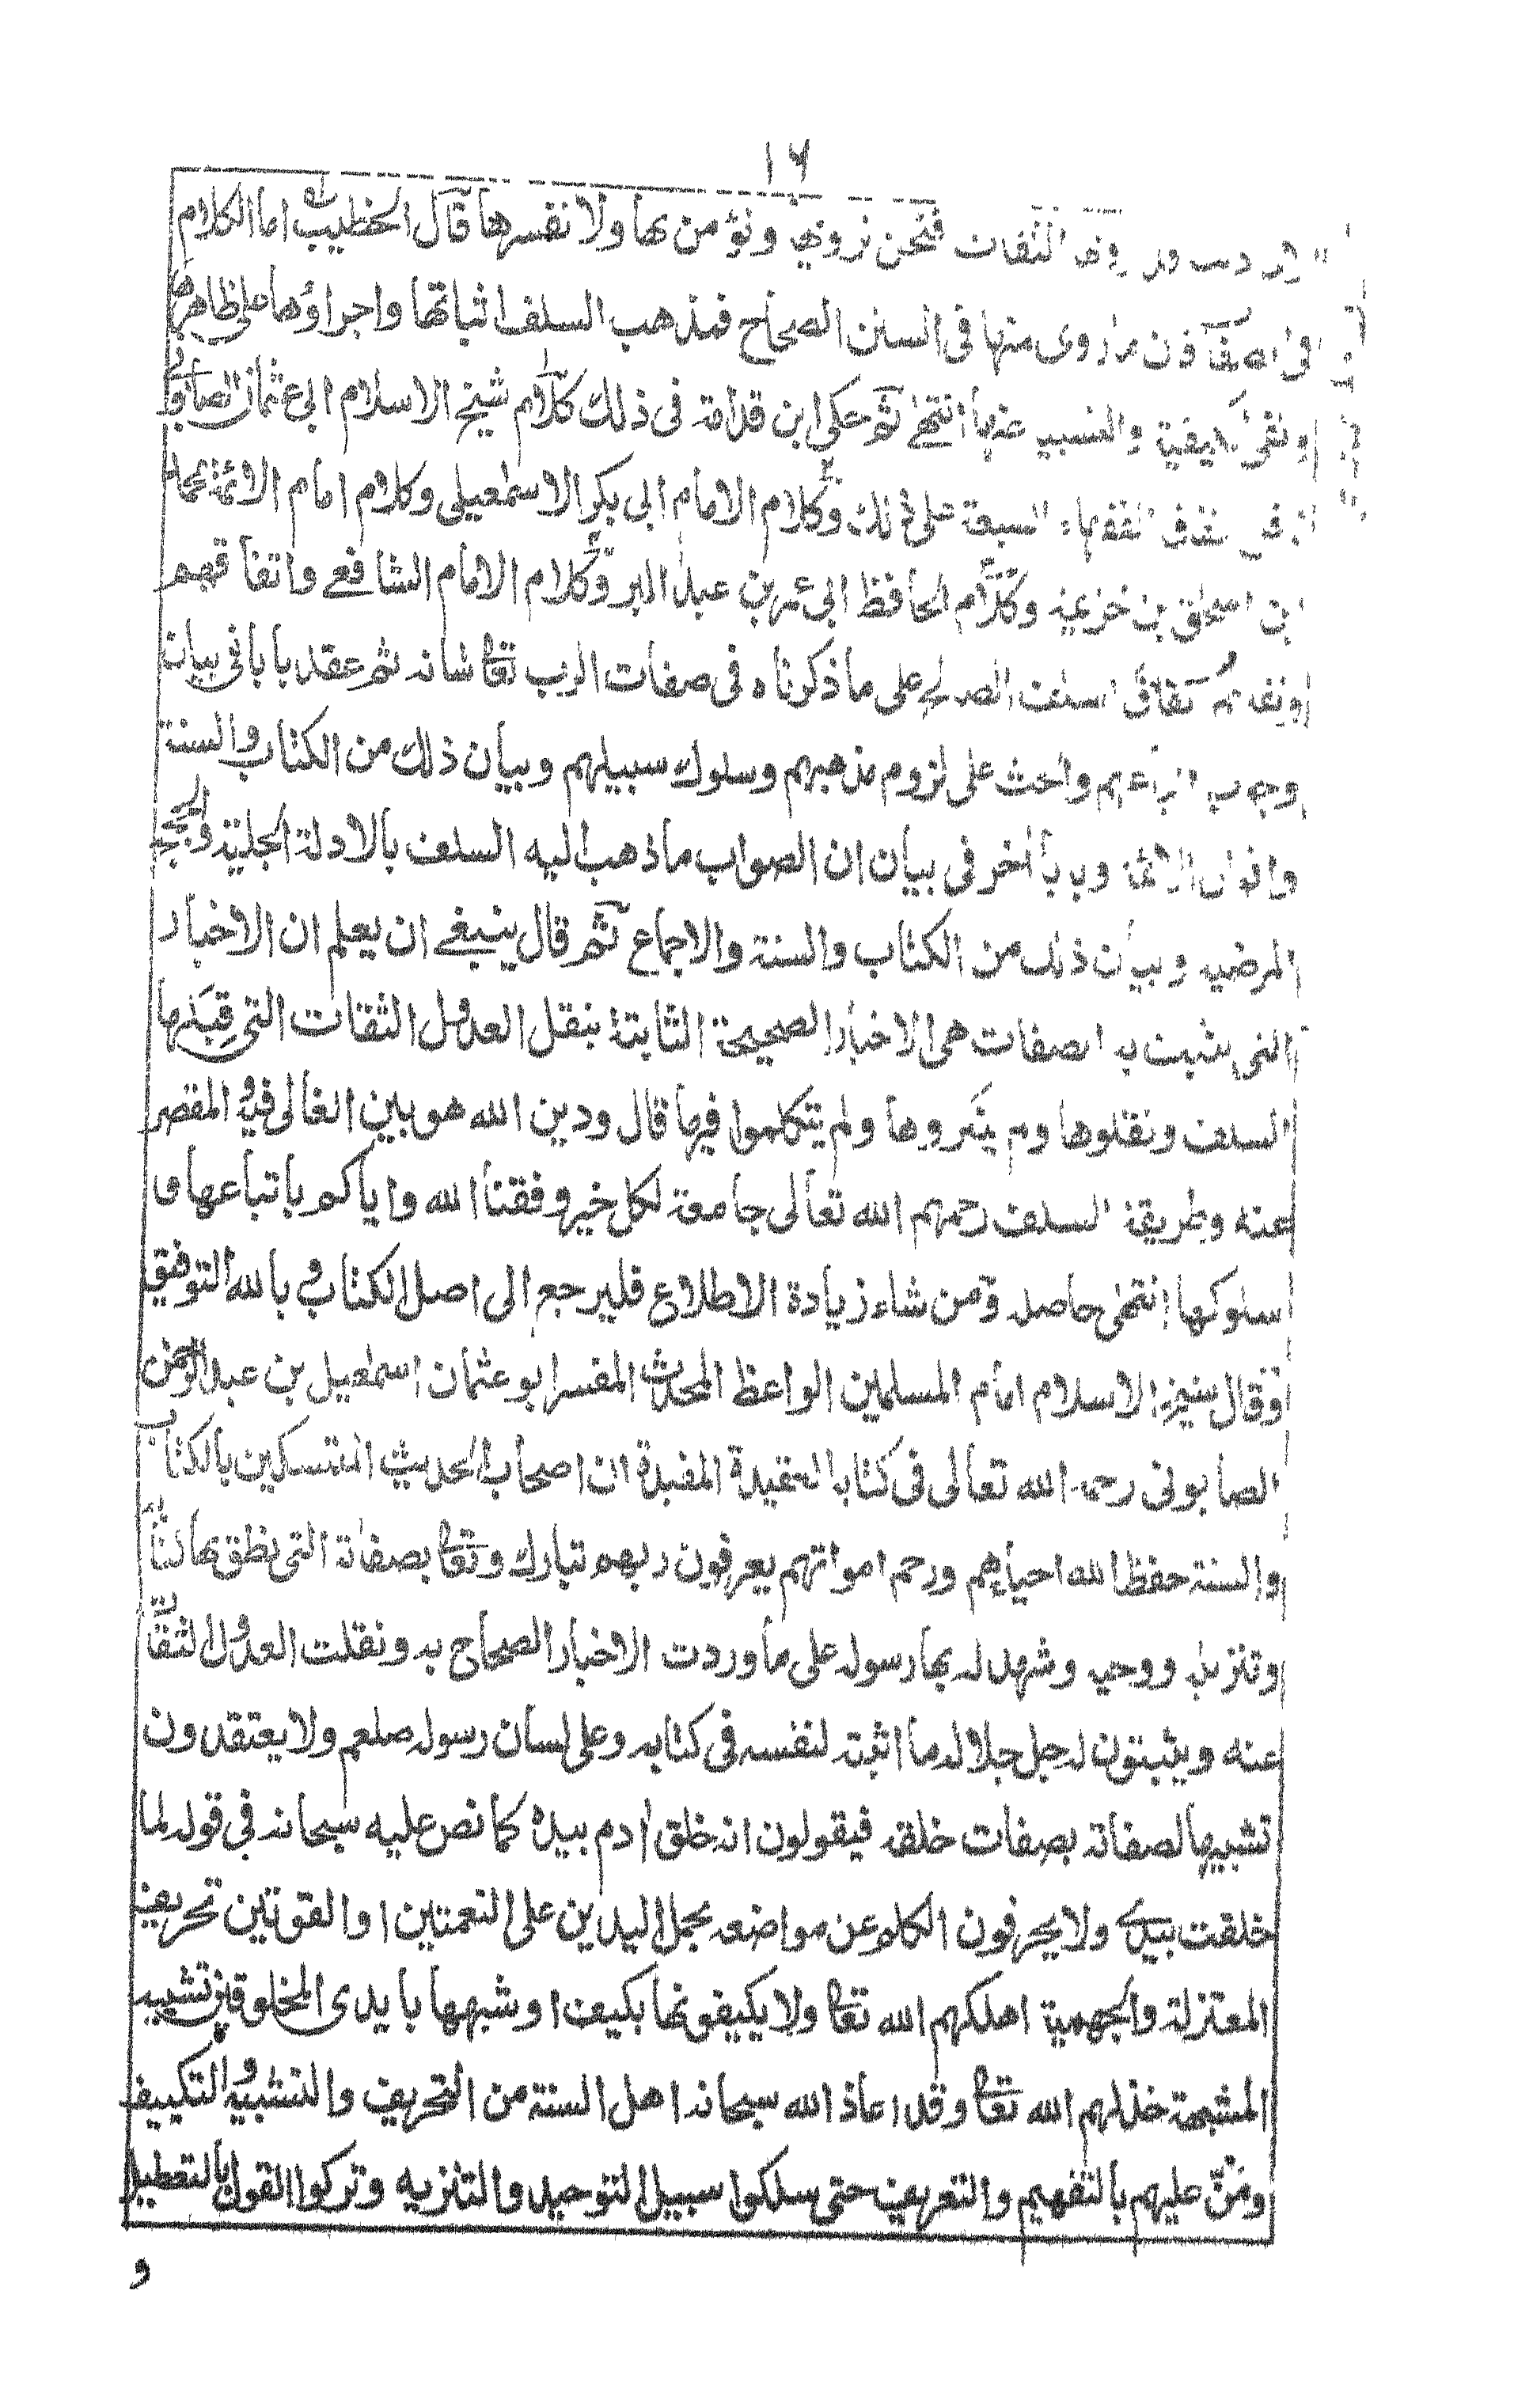 ١٦
الثقات فنحن نرويها ونؤمن بها ولا نفسرها قال الخطيب اما الكلام
فى الصفات فان ما روى منها فى السنن الصحاح فمذهب السلف اثباتها واجراؤها على ظاهرها
ونفى الكيفية والتشبيه عنها انتهى ثم حكى ابن قدامة فى ذلك كلام شيخ الاسلام ابى عثمان الصابونى
الفقهاء السبعة على ذلك وكلام الامام ابى بكر الاسمعيلى وكلام امام الائمة محمد
ابن اسحق بن خزيمة وكلام الحافظ ابى عمر بن عبد البر وكلام الامام الشافعے واتفاقهم
السلف الصالح على ما ذكرناه فى صفات الرب تعالى شانه ثم عقد بابا فى بيان
وجوب اتباعهم والحث على لزوم مذهبهم وسلوك سبيلهم وبيان ذلك من الكتاب والسنة
واقوال الائمة وبابا اخر فى بيان ان الصواب ما ذهب اليه السلف بالادلة الجلية والحجج
المرضيه وبيان ذلك من الكتاب والسنة والاجماع ثم قال ينبغے ان يعلم ان الاخبار
التى يثبت به الصفات هى الاخبار الصحيحة الثابتة بنقل العدول الثقات التى قبلها
السلف ونقلوها ولم ينكروها ولم يتكلموا فيها قال ودين الله هو بين الغالى فيه والمقصر
عنه وطريقة السلف رحمهم الله تعالى جامعة لكل خير وفقنا الله واياكم باتباعها و
سلوكها انتهى حاصله ومن شاء زيادة الاطلاع فليرجع الى اصل الكتاب وبالله التوفيق
وقال شيخ الاسلام امام المسلمين الواعظ المحدث المفسر ابو عثمان اسمعيل بن عبد الرحمن
الصابونى رحمه الله تعالى فى كتابه العقيدة المفيدة ان اصحاب الحديث المتمسكين بالكتاب
والسنة حفظ الله احياءهم ورحم امواتهم يعرفون ربهم تبارك وتعالى بصفاته التى نطق بها كتابه
وتنزيله ووحيه وشهد له بها رسوله على ما وردت الاخبار الصحاح به ونقلت العدول الثقات
عنه ويثبتون له جل جلاله ما اثبته لنفسه فى كتابه وعلى لسان رسوله صلعم ولا يعتقدون
تشبيها لصفاته بصفات خلقه فيقولون انه خلق ادم بيده كما نص عليه سبحانه فى قوله لما
خلقت بيدى ولا يحرفون الكلام عن مواضعه بحمل اليدين على النعمتين او القوتين تحريف
المعتزلة والجهمية اهلكهم الله تعالى ولا يكيفونها بكيف او شبهها بايدى المخلوقين تشبيه
المشبهة خذلهم الله تعالى وقد اعاذ الله سبحانه اهل السنة من التحريف والتشبيه والتكييف
ومَنّ عليهم بالتفهيم والتعريف حتى سلكوا سبيل التوحيد والتنزيه وتركوا القول بالتعطيل
و